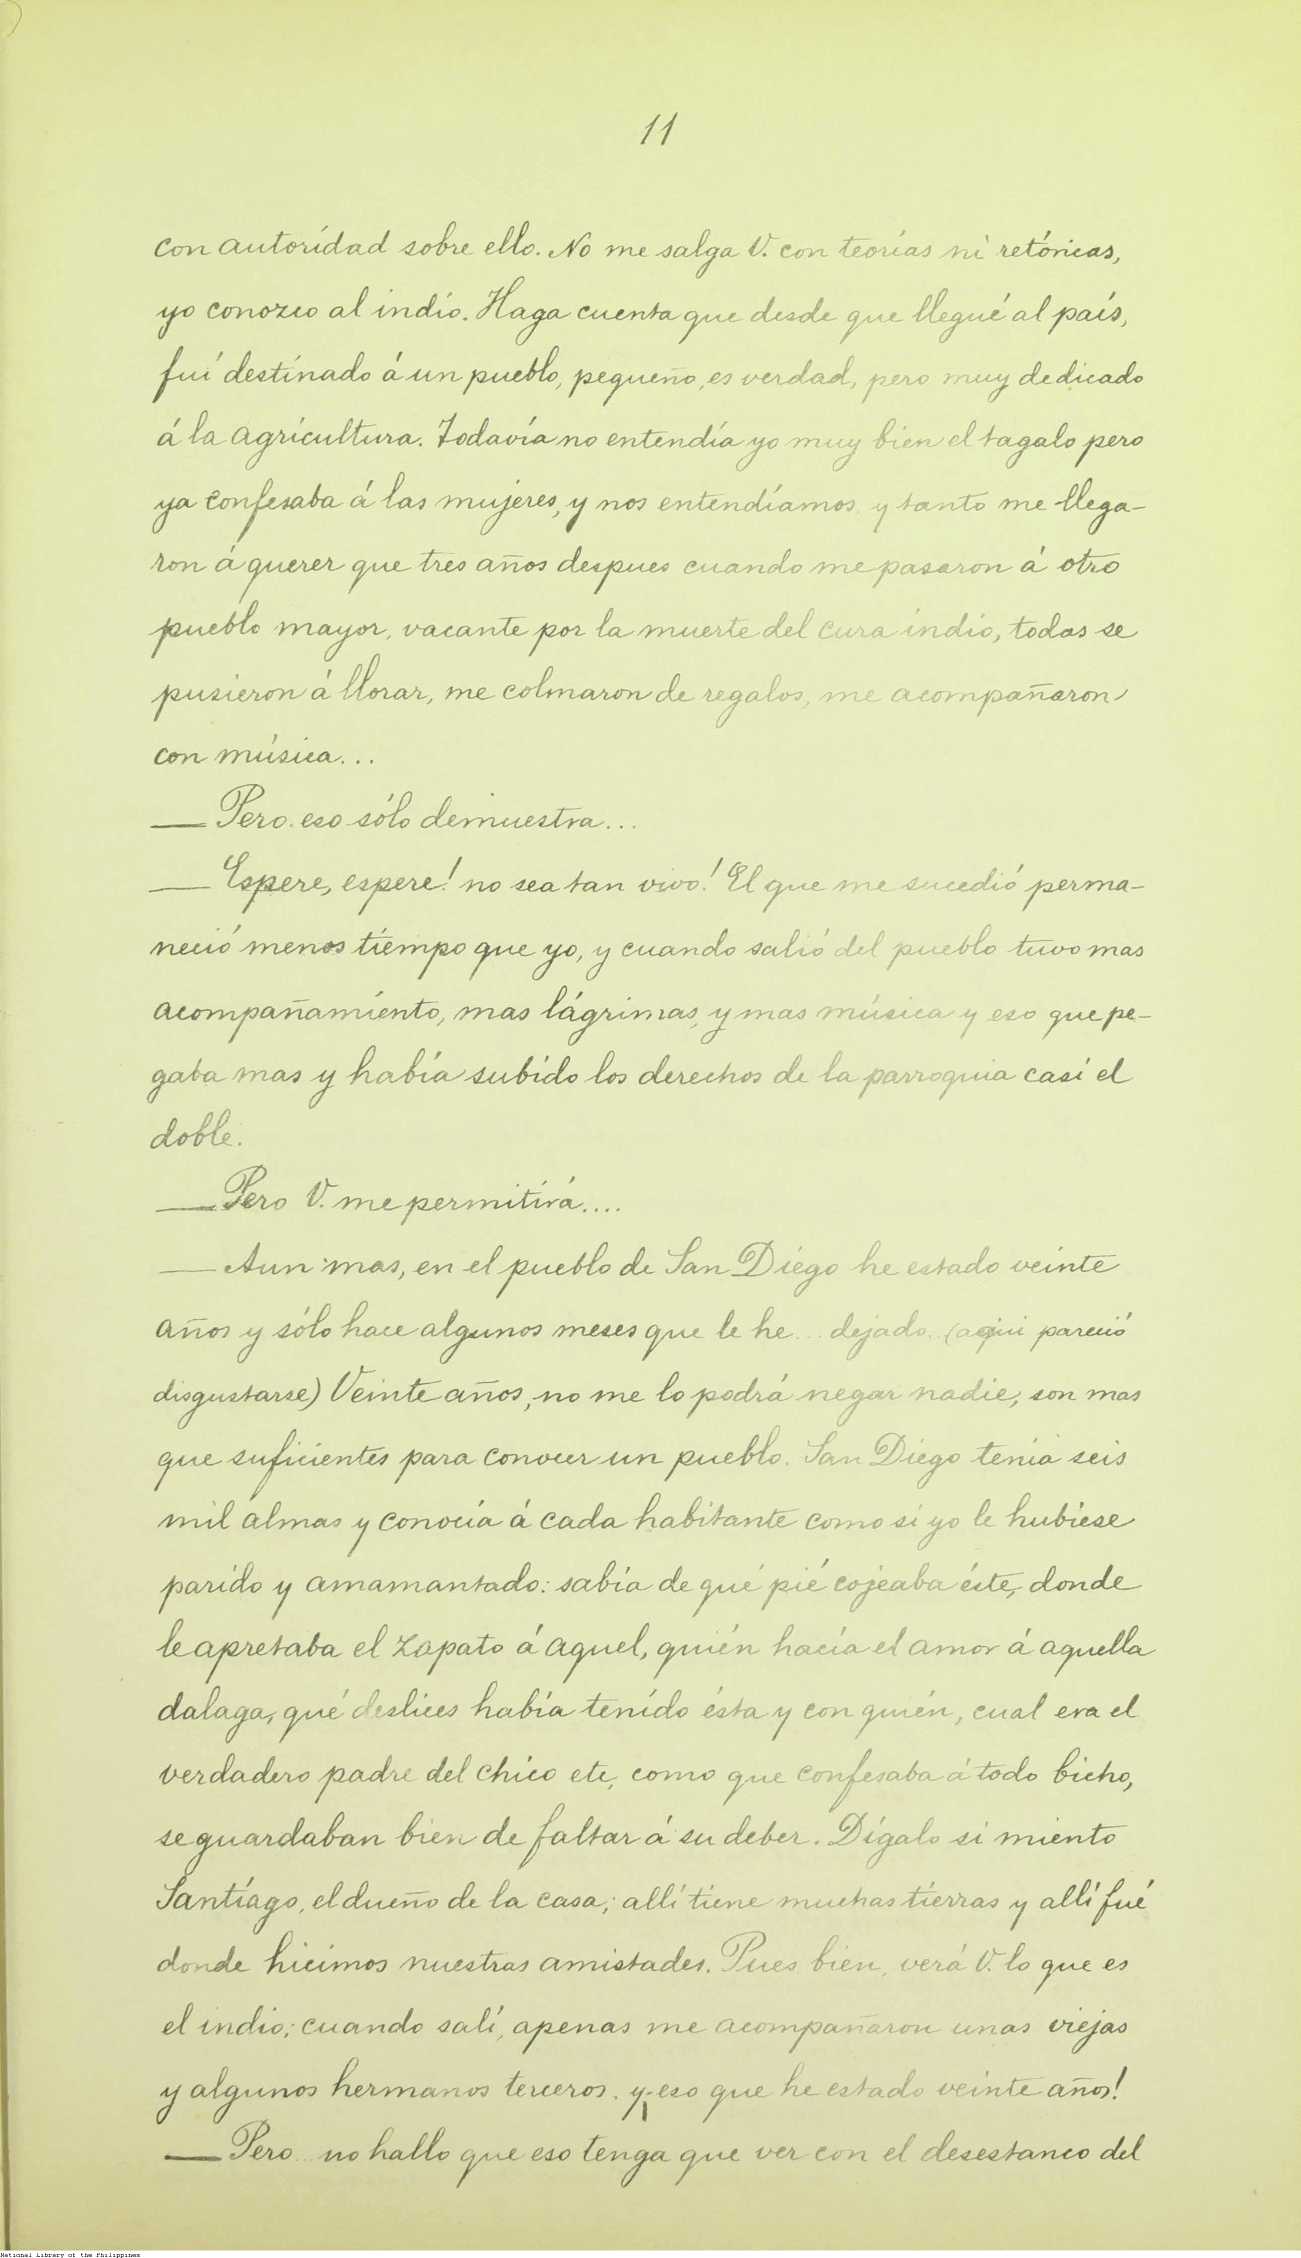 11
con autoridad sobre ello. No me salga V. con teorías ni retóricas,
yo conozco al indio. Haga cuenta que desde que llegué al país,
fuí destinado á un pueblo, pequeño, es verdad, pero muy dedicado
á la agricultura. Todavía no entendía yo muy bien el tagalo pero
ya confesaba á las mujeres, y nos entendíamos y tanto me llega-
ron á querer que tres años despues cuando me pasaron á otro
pueblo mayor, vacante por la muerte del cura indio, todas se
pusieron á llorar, me colmaron de regalos, me acompañaron
con música...
— Pero eso sólo demuestra...
— Espere, espere! no sea tan vivo! El que me sucedió perma-
neció menos tiempo que yo, y cuando salió del pueblo tuvo mas
acompañamiento, mas lágrimas, y mas música y eso que pe-
gaba mas y había subido los derechos de la parroquia casi el
doble.
— Pero V. me permitirá....
— Aun mas, en el pueblo de San Diego he estado veinte
años y sólo hace algunos meses que le he... dejado. (aquí pareció
disgustarse) Veinte años, no me lo podrá negar nadie, son mas
que suficientes para conocer un pueblo. San Diego tenía seis
mil almas y conocía á cada habitante como si yo le hubiese
parido y amamantado: sabía de qué pié cojeaba éste, donde
le apretaba el zapato á aquel, quién hacía el amor á aquella
dalaga, qué deslices había tenido ésta y con quién, cual era el
verdadero padre del chico etc, como que confesaba á todo bicho,
se guardaban bien de faltar á su deber. Dígalo si miento
Santiago, el dueño de la casa; allí tiene muchas tierras y allí fué
donde hicimos nuestras amistades. Pues bien, verá V. lo que es
el indio; cuando salí, apenas me acompañaron unas viejas
y algunos hermanos terceros. y eso que he estado veinte años!
— Pero... no hallo que eso tenga que ver con el desestanco del
National Library of the Philippines